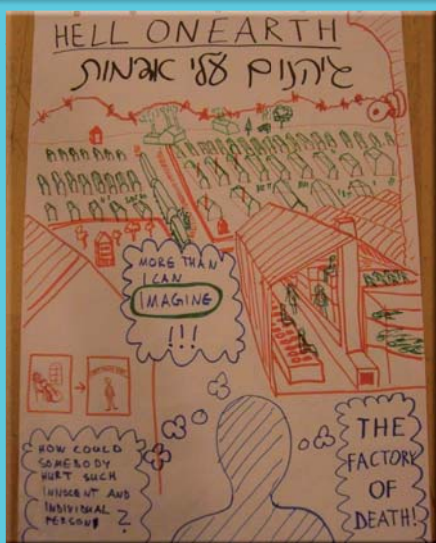 HELL ON EARTH
גיהנום עלי אדמות
MORE THAN
I CAN
IMAGINE
!!!
HOW COULD
SOMEBODY
HURT SUCH
INNOCENT AND
INDIVIDUAL
PERSONS ?
THE
FACTORY
OF
DEATH!